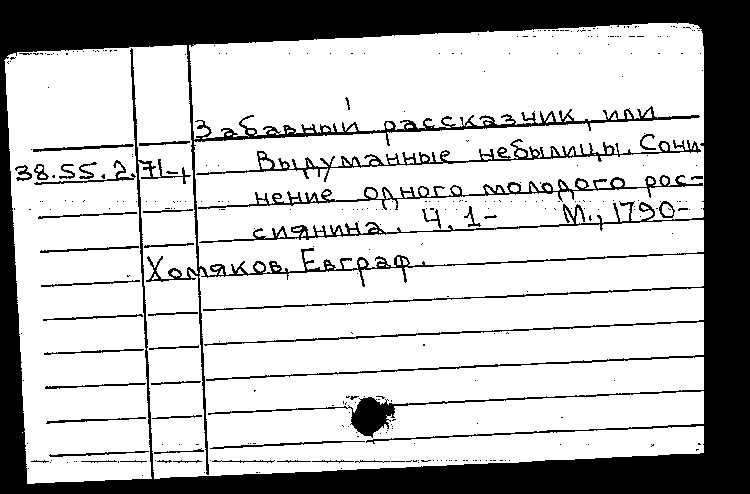 Забавный рассказник, или
38.55.2.71-, Выдуманные небылицы. Сочи-
нение одного молодого рос-
сиянина. Ч. 1- М., 1790-
Хомяков, Евграф.